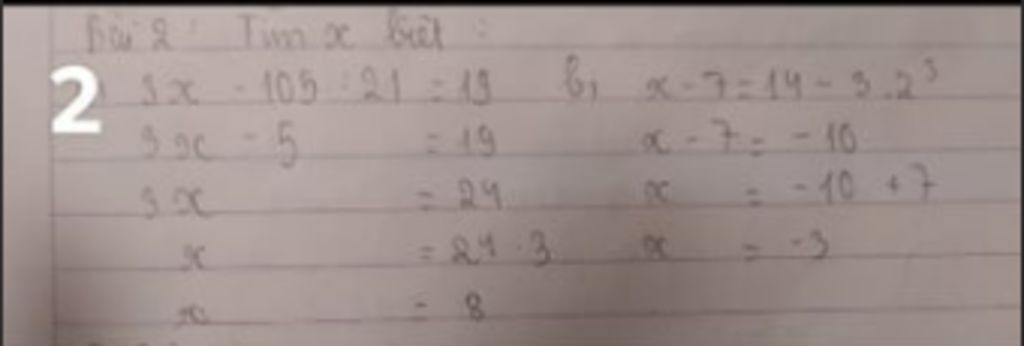 Bài 2: Tìm x biết:
2 3x - 105 : 21 = 19 b, x - 7 = 14 - 3.2³
3x - 5 = 19 x - 7 = -10
3x = 24 x = -10 + 7
x = 24 : 3 x = -3
x = 8